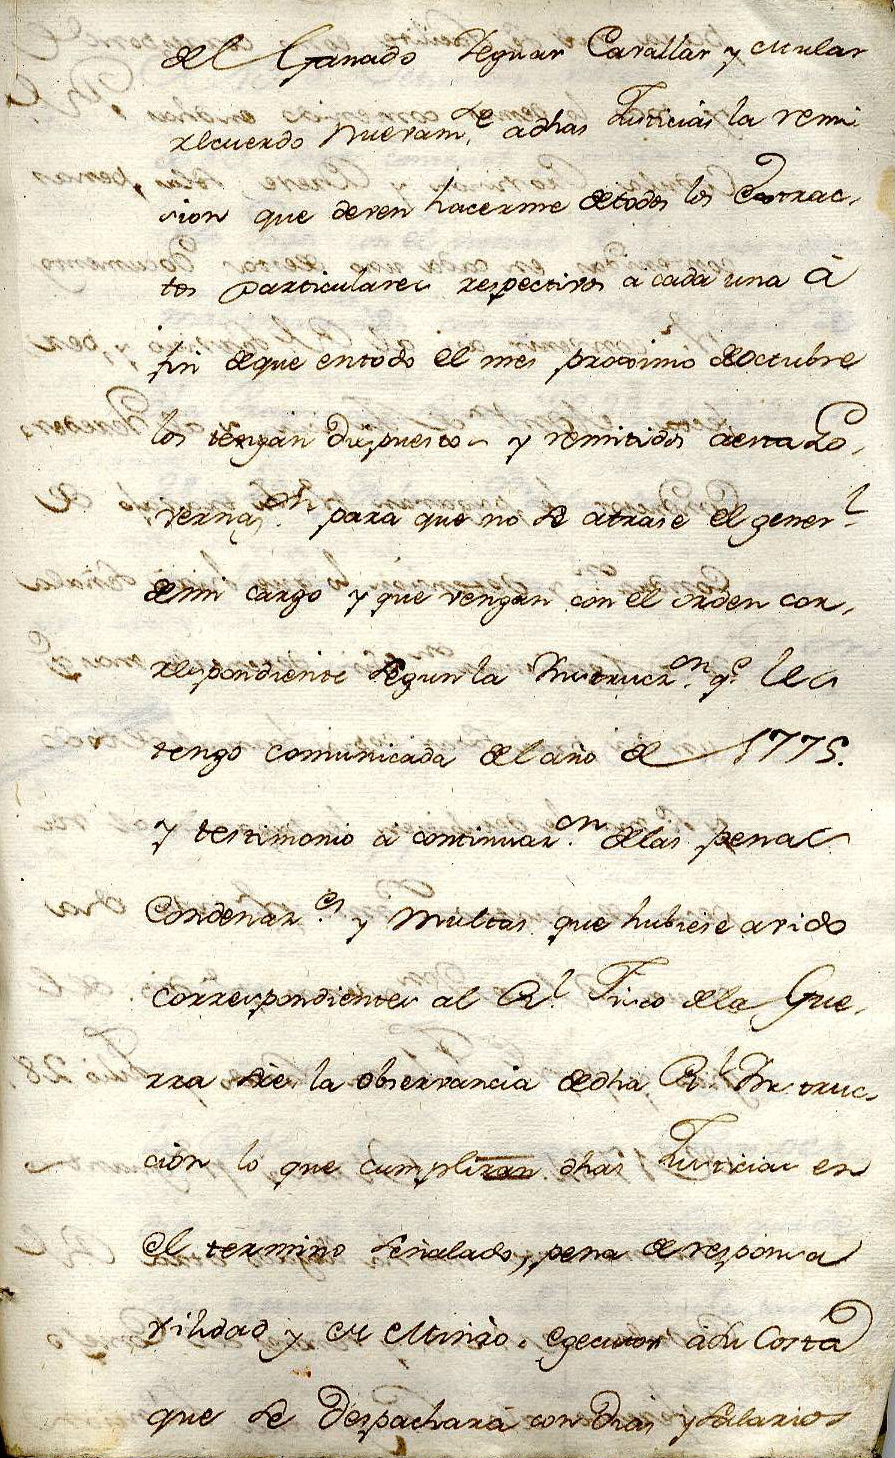 del Ganado Yeguar Cavallar y Mular
recuerdo nuevam.te a dhas Justicias la remi
sion que deven hacerme de todos los Extrac-
tos particulares respectivos a cada una â
fin de que en todo el mes proximo de octubre
los tengan dispuestos y remitidos a esta Go-
vernaz.on para que no se atrase el gener.l
de mi cargo y que vengan con el orden cor-
respondiente segun la Instrucz.on q.e les
tengo comunicada del año de 1775.
y testimonio à continuaz.on de las penas
Condenaz.es y Multas que hubiese avido
correspondientes al Rl. Fisco de la Gue-
rra sre la observancia de dha Rl. Instruc-
ción lo que cumpliran dhas Justicias en
el termino señalado, pena de responsa
vilidad y de Minro. egecutor à su costa
que se Despachará con Dias y Salarios